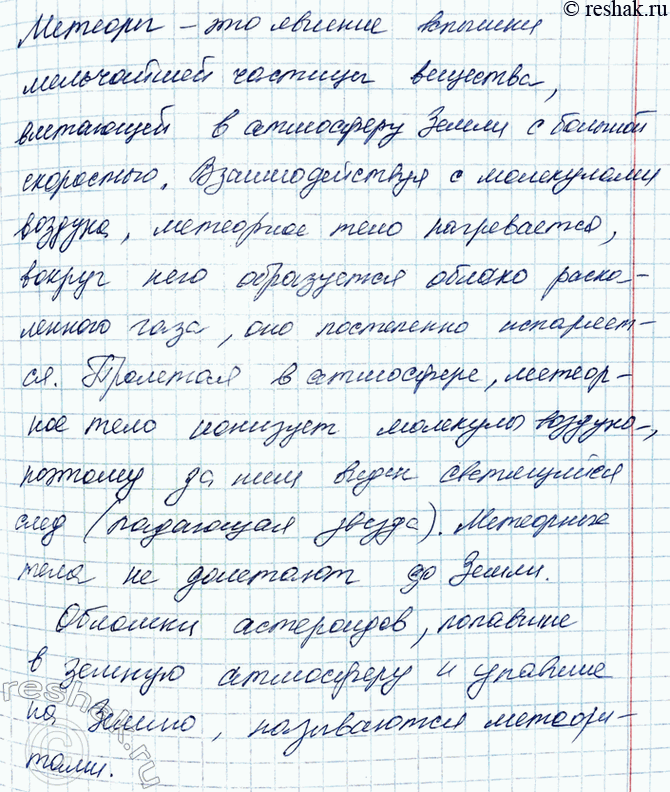 © reshak.ru
Метеоры – это явление вспышки
мельчайшей частицы вещества,
влетающей в атмосферу Земли с большой
скоростью. Взаимодействуя с молекулами
воздуха, метеорное тело нагревается,
вокруг него образуется облако раска-
ленного газа, оно постепенно испаряет-
ся. Пролетая в атмосфере, метеор-
ное тело ионизует молекулы воздуха,
поэтому за ним виден светящийся
след (падающая звезда). Метеорные
тела не долетают до Земли.
Обломки астероидов, попавшие
в земную атмосферу и упавшие
на Землю, называются метеори-
тами.
reshak.ru